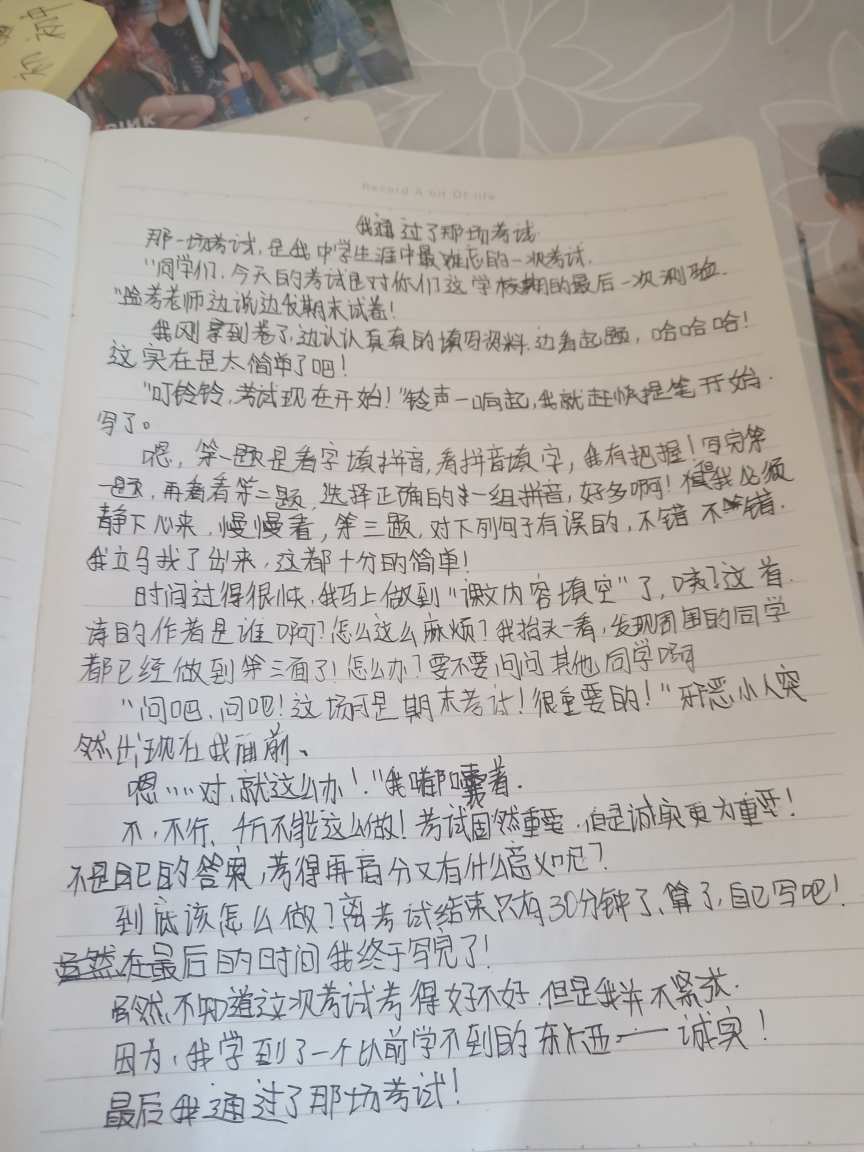 Record A bit Of life
我通过了那场考试
那一场考试,是我中学生涯中最难忘的一次考试.
"同学们,今天的考试是对你们这学校期的最后一次测验.
"监考老师边说边发期末试卷!
我刚拿到卷子,边认认真真的填写资料,边看起题,哈哈哈!
这实在是太简单了吧!
"叮铃铃,考试现在开始!"铃声一响起,我就赶快提笔开始
写了。
嗯,第一题是看字填拼音,看拼音填字,我有把握!写完第
一题,再看看第二题,选择正确的一组拼音,好多啊!我必须
静下心来,慢慢看,第三题,对下列句子有误的,不错不错.
我立马找了出来,这都十分的简单!
时间过得很快,我马上做到"课文内容填空"了,咦?这首
诗的作者是谁啊?怎么这么麻烦?我抬头一看,发现周围的同学
都已经做到第三面了!怎么办?要不要问问其他同学啊
"问吧,问吧!这场可是期末考试!很重要的!"邪恶小人突
然出现在我面前、
嗯……对,就这么办!"我嘟囔着.
不,不行、千万不能这么做!考试固然重要,但是诚实更为重要!
不是自己的答案,考得再高分又有什么意义呢?
到底该怎么做?离考试结束只有30分钟了、算了,自己写吧!
在最后的时间我终于写完了!
虽然不知道这次考试考得好不好,但是我并不紧张.
因为,我学到了一个以前学不到的东西——诚实!
最后我通过了那场考试!